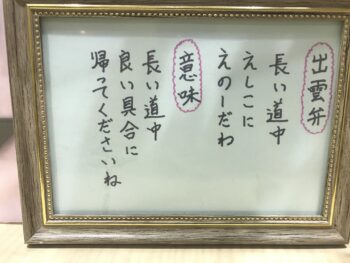 出雲弁
長い道中
えしこに
えのーだわ
意味
長い道中
良い具合に
帰ってくださいね